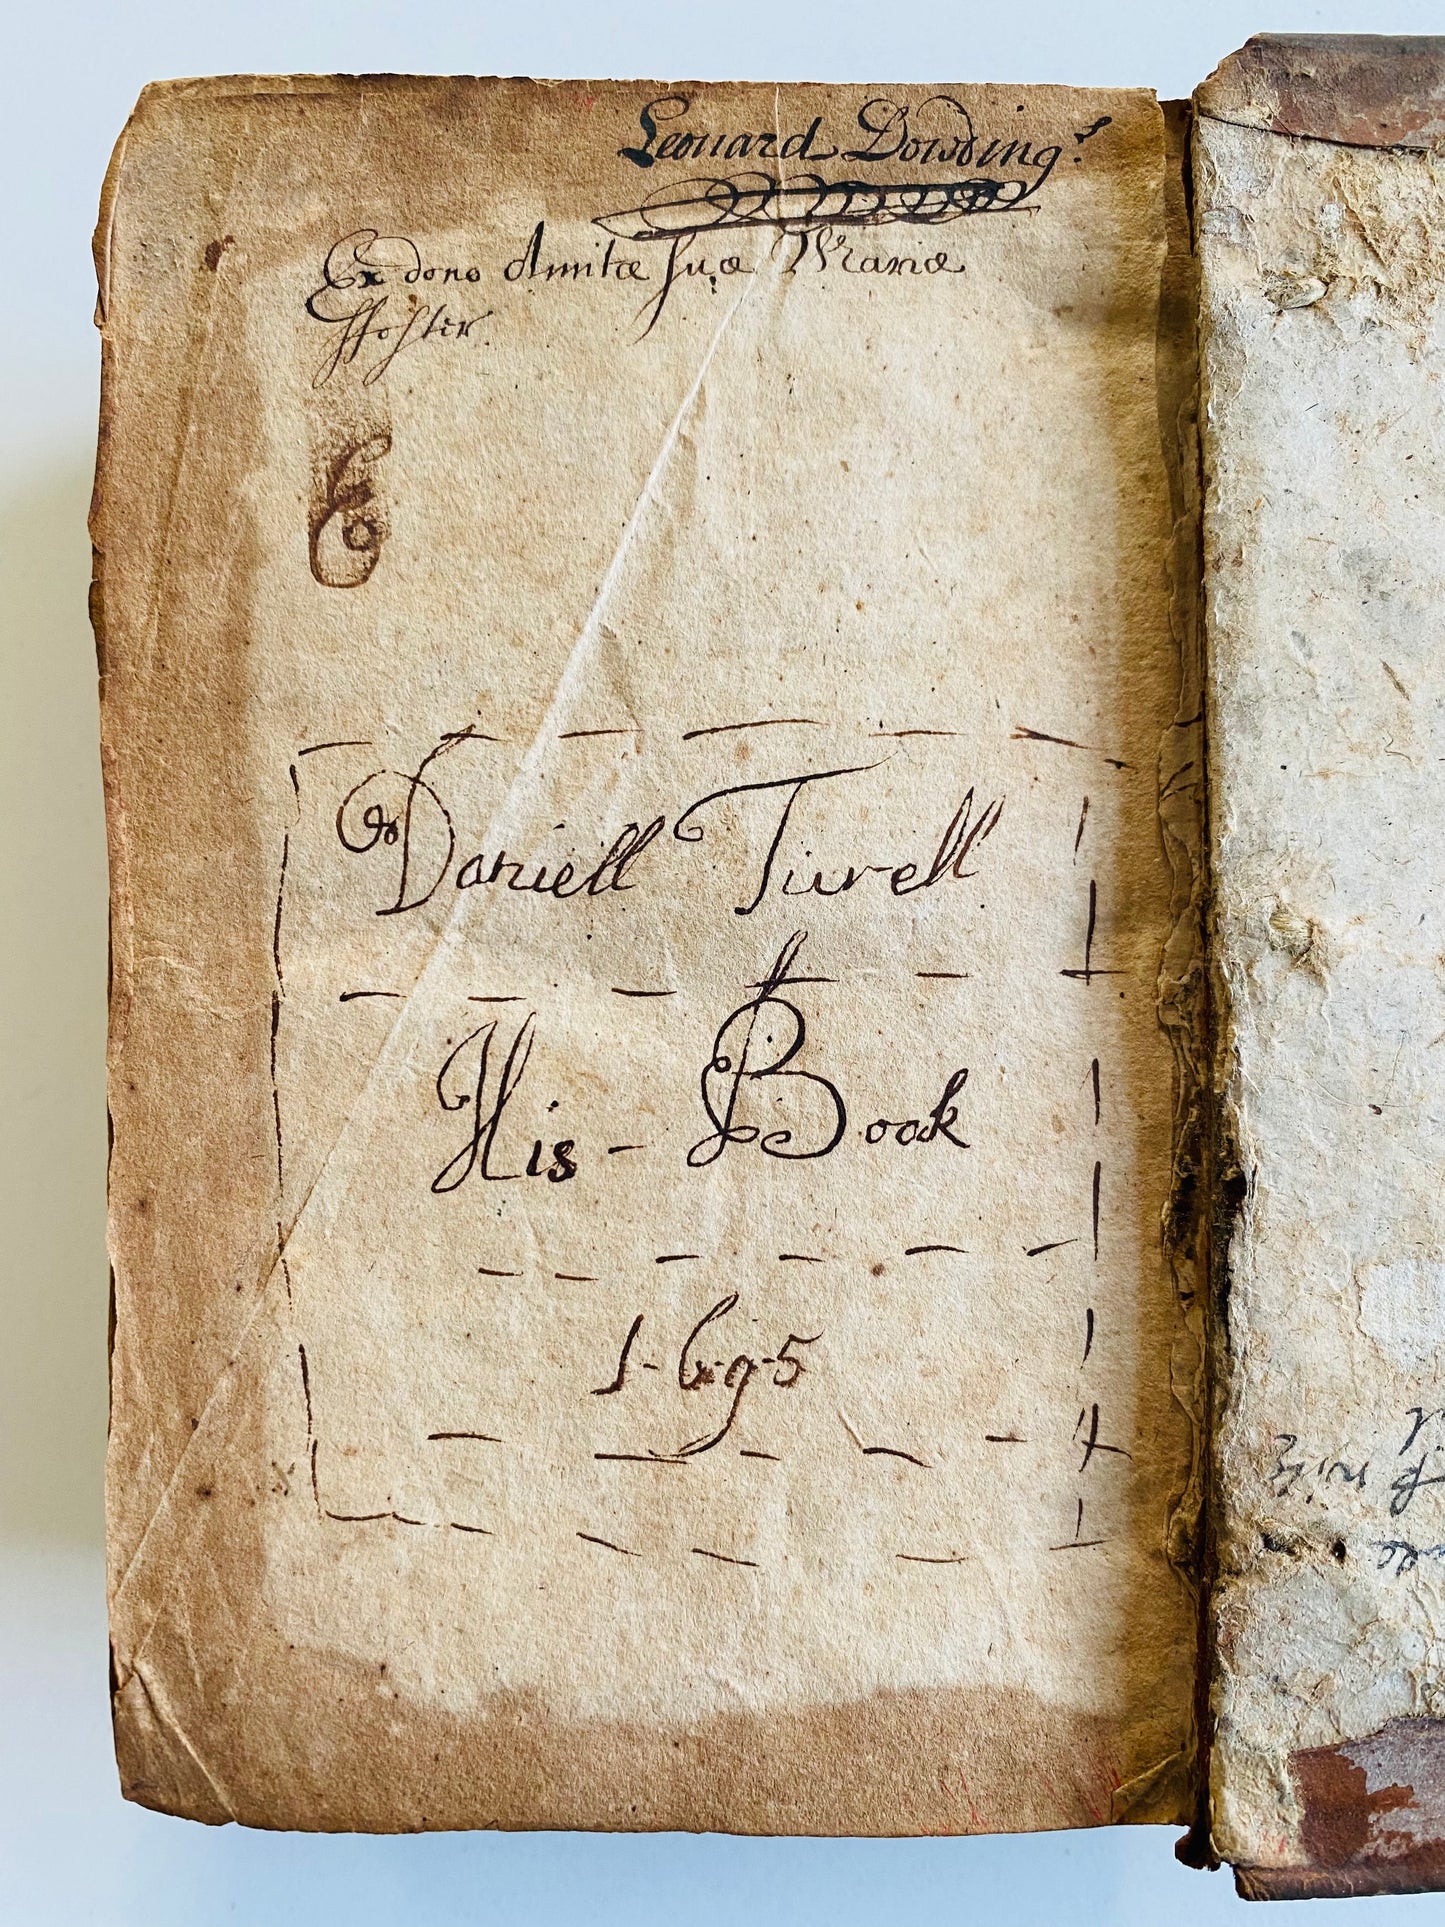 Leonard Dowding.s
Ex dono Amitæ suæ Mariæ
ffoster.
Daniell Turell
His - Book
1-6-9-5